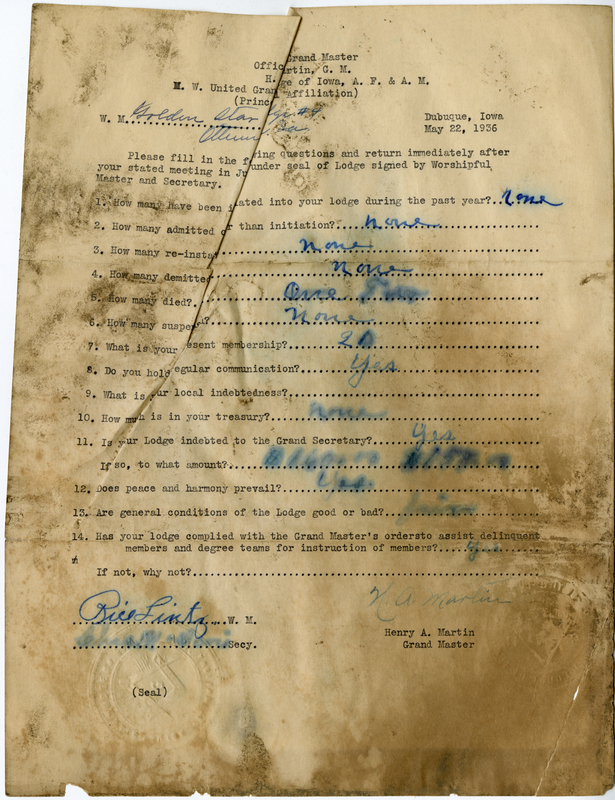 Grand Master
Offic
rtin, G. M.
H.
ge of Iowa, A. F. & A. M.
M. W. United Gran
(Princ Affiliation)
W. M. Golden Star
Dubuque, Iowa
May 22, 1936
Please fill in the f wing questions and return immediately after
your stated meeting in Ju under seal of Lodge signed by Worshipful
Master and Secretary.
1. How many have been iated into your lodge during the past year? None
2. How many admitted r than initiation? None
3. How many re-insta None
4. How many demitted None
5. How many died? One
6. How many suspen d? None
7. What is your esent membership? 20
8. Do you hold egular communication? Yes
9. What is ur local indebtedness?
10. How much is in your treasury? None
11. Is your Lodge indebted to the Grand Secretary? Yes
If so, to what amount?
12. Does peace and harmony prevail? Yes
13. Are general conditions of the Lodge good or bad?
14. Has your lodge complied with the Grand Master's ordersto assist delinquent
members and degree teams for instruction of members? Yes
If not, why not?
H A Martin
Rice Lintz W. M.
Henry A. Martin
Secy.
Grand Master
(Seal)